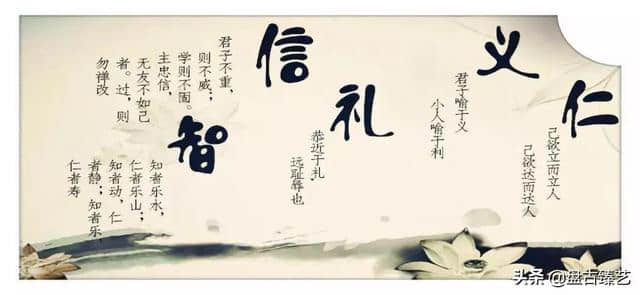 仁
己欲立而立人
己欲达而达人
义
君子喻于义
小人喻于利
礼
恭近于礼,
远耻辱也
信
君子不重,
则不威;
学则不固。
主忠信,
无友不如己
者。过,则
勿禅改
智
知者乐永,
仁者乐山;
知者动,仁
者静;知者乐,
仁者寿
头条 @盘古臻艺